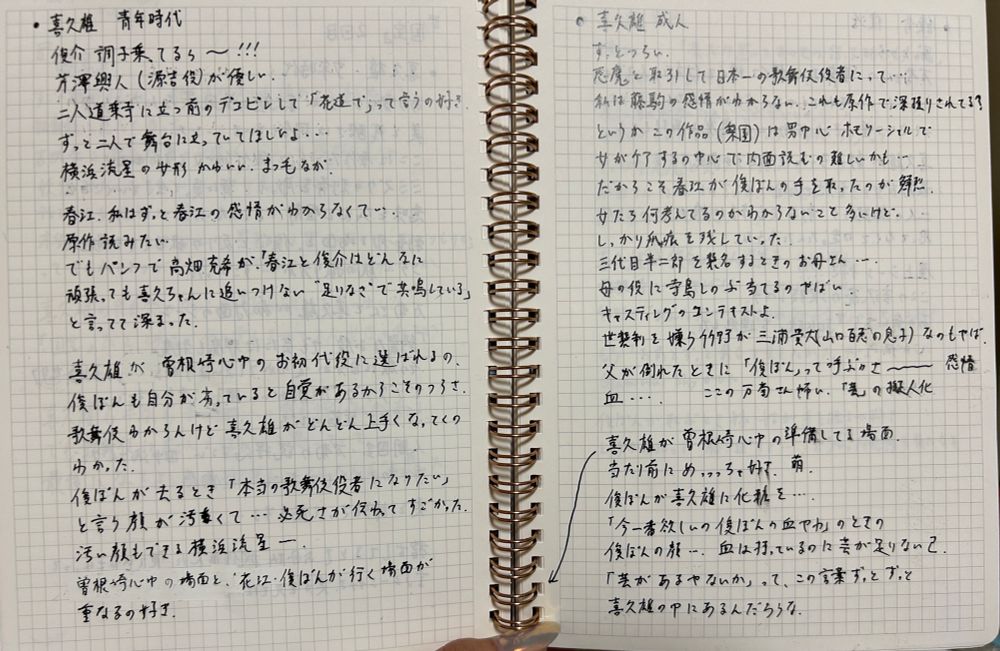 • 喜久雄 青年時代
俊介 調子乗ってるぅ〜!!!
芹澤興人(源吉役)が優しい.
二人道乗寺に立つ前のデコピンして「花道で」って言うの好き.
ずっと二人で舞台に立っていてほしいよ・・・
横浜流星の女形 かわいい. まつ毛なが.
春江. 私はずっと春江の感情がわからなくて…
原作読みたい.
でもパンフで 高畑充希が、「春江と俊介はどんなに
頑張っても喜久ちゃんに追いつけない “足りなさ”で共鳴している」
と言ってて深まった.
喜久雄が 曽根崎心中のお初代役に選ばれるの.
俊ぼんも自分が劣っていると自覚があるからこそのつらさ.
歌舞伎わからんけど 喜久雄がどんどん上手くなってくの
わかった.
俊ぼんが去るとき「本当の歌舞伎役者になりたい」
と言う顔が汚くて… 必死さが伝わってすごかった.
汚い顔もできる横浜流星ー.
曽根崎心中の場面と、花江・俊ぼんが行く場面が
重なるの好き.
○ 喜久雄 成人
ずっとつらい.
悪魔と取引して日本一の歌舞伎役者にって…
私は藤駒の感情がわからない. これも原作で深掘りされてる?
というか この作品(梨園)は男中心 ホモソーシャルで
女がケアするの中心で内面読むの難しいかも…
だからこそ春江が俊ぼんの手を取ったのが鮮烈.
女たち何考えてるのかわからないこと多いけど.
しっかり爪痕を残していった.
三代目半二郎を襲名するときのお母さん…
母の役に寺島しのぶ当てるのやばい.
キャスティングのコンテキストよ.
世襲制を嫌う竹野が 三浦貴大(山口百恵の息子)なのもやば.
父が倒れたときに「俊ぼん」って呼ぶ 〜 感情
血・・・. ここの万菊さん怖い. 「芸」の擬人化
喜久雄が曽根崎心中の準備してる場面.
当たり前にめっっっちゃ好き. 萌.
俊ぼんが喜久雄に化粧を….
「今一番欲しいの俊ぼんの血やわ」のときの
俊ぼんの顔… 血は持っているのに芸が足りない己.
「芸があるやないか」って、この言葉ずっとずっと
喜久雄の中にあるんだろうな.